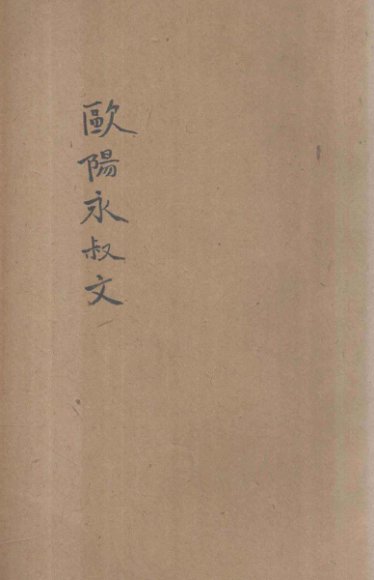 歐陽永叔文